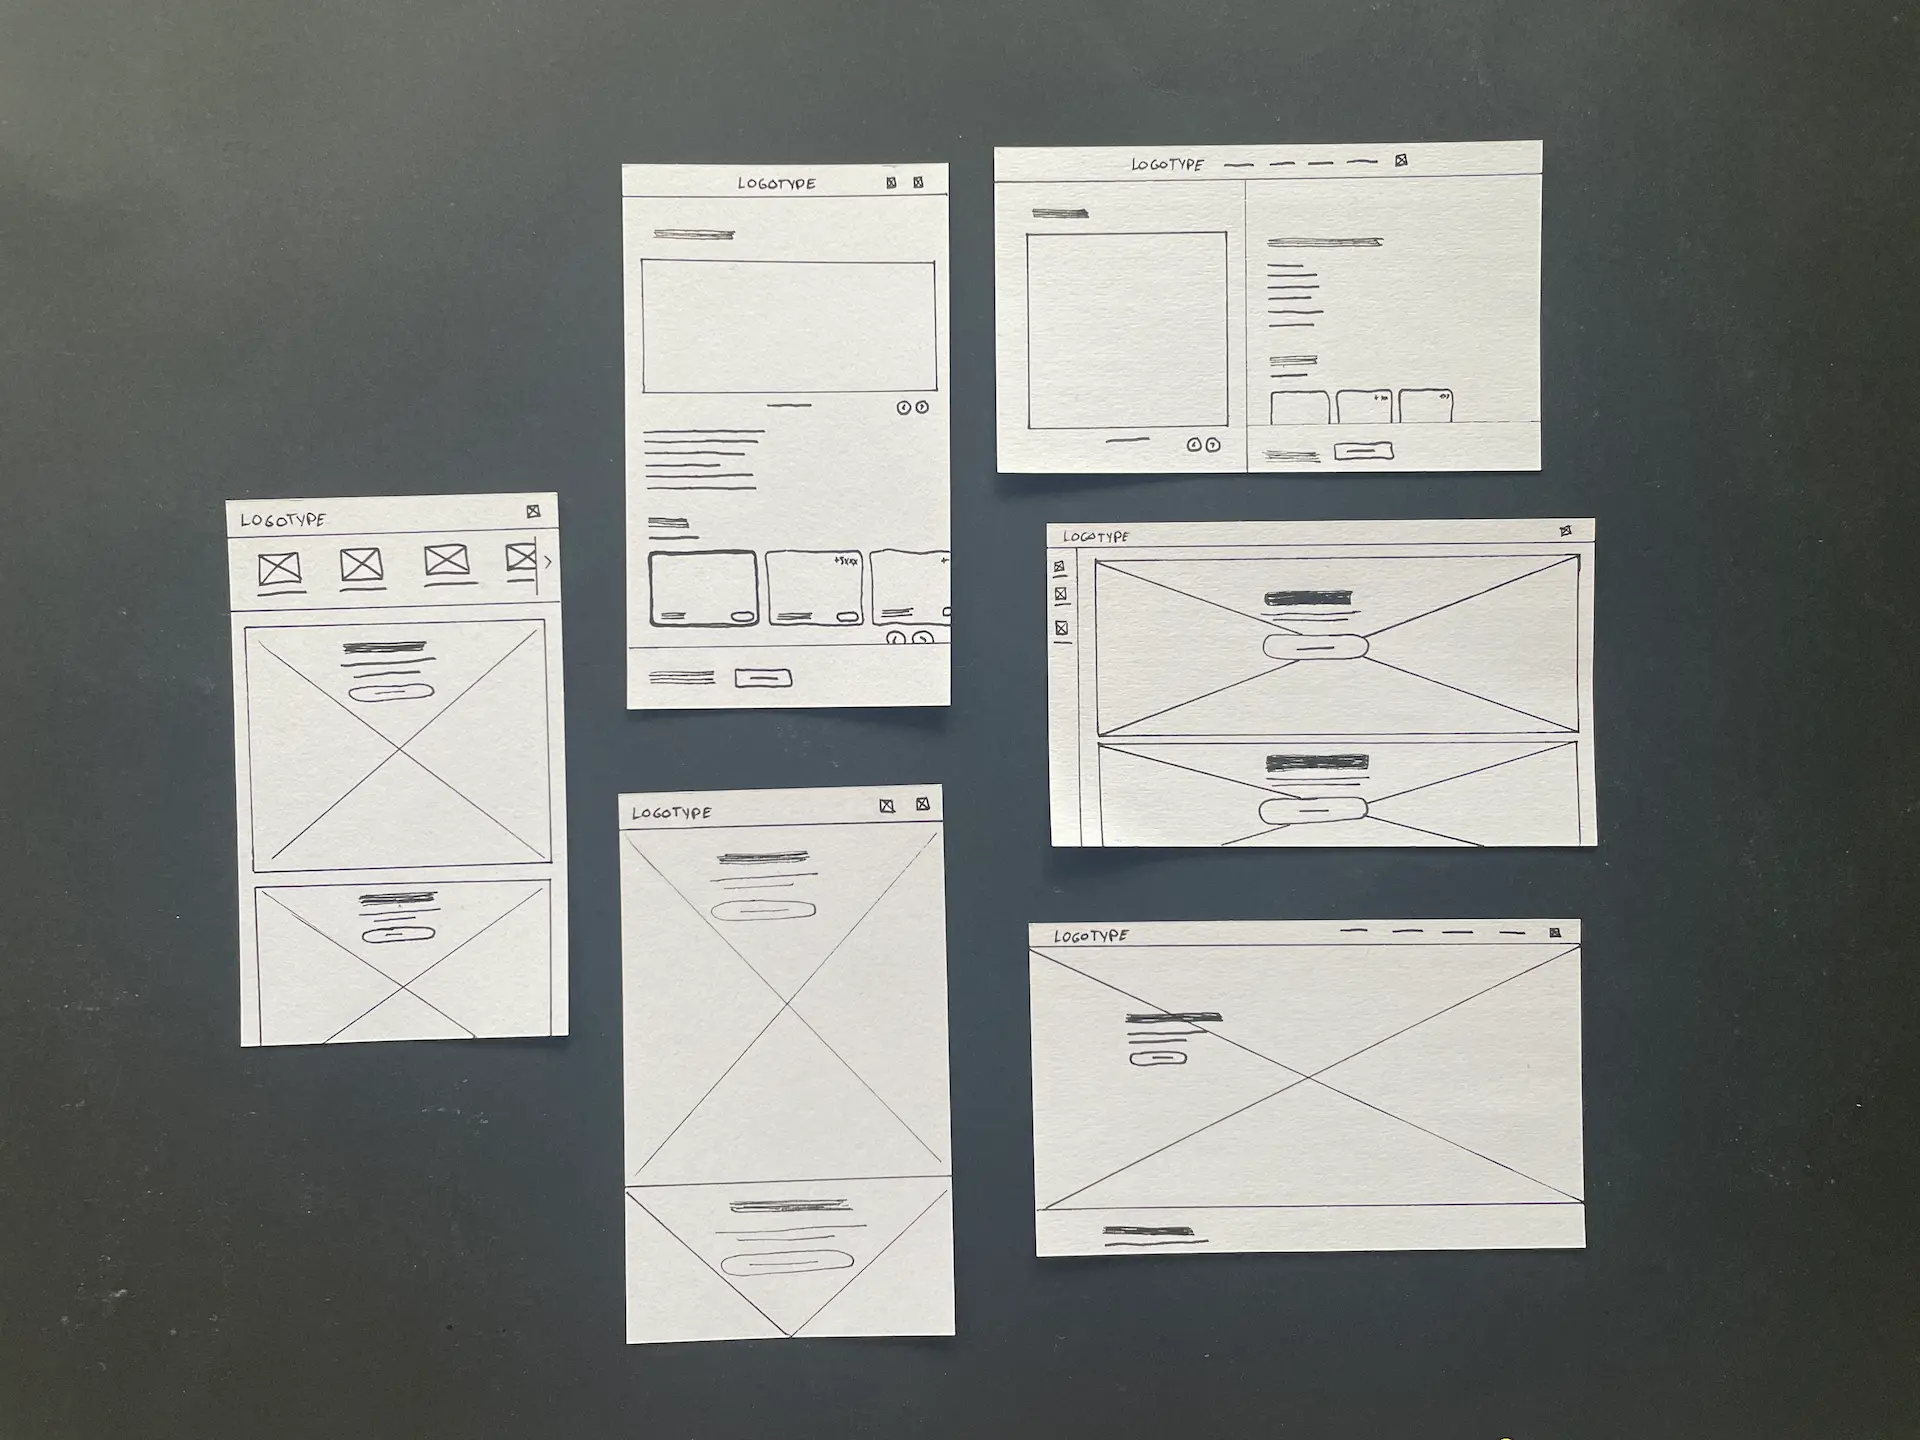 LOGOTYPE
LOGOTYPE
LOGOTYPE
+$xxx
LOGOTYPE
LOGOTYPE
LOGOTYPE